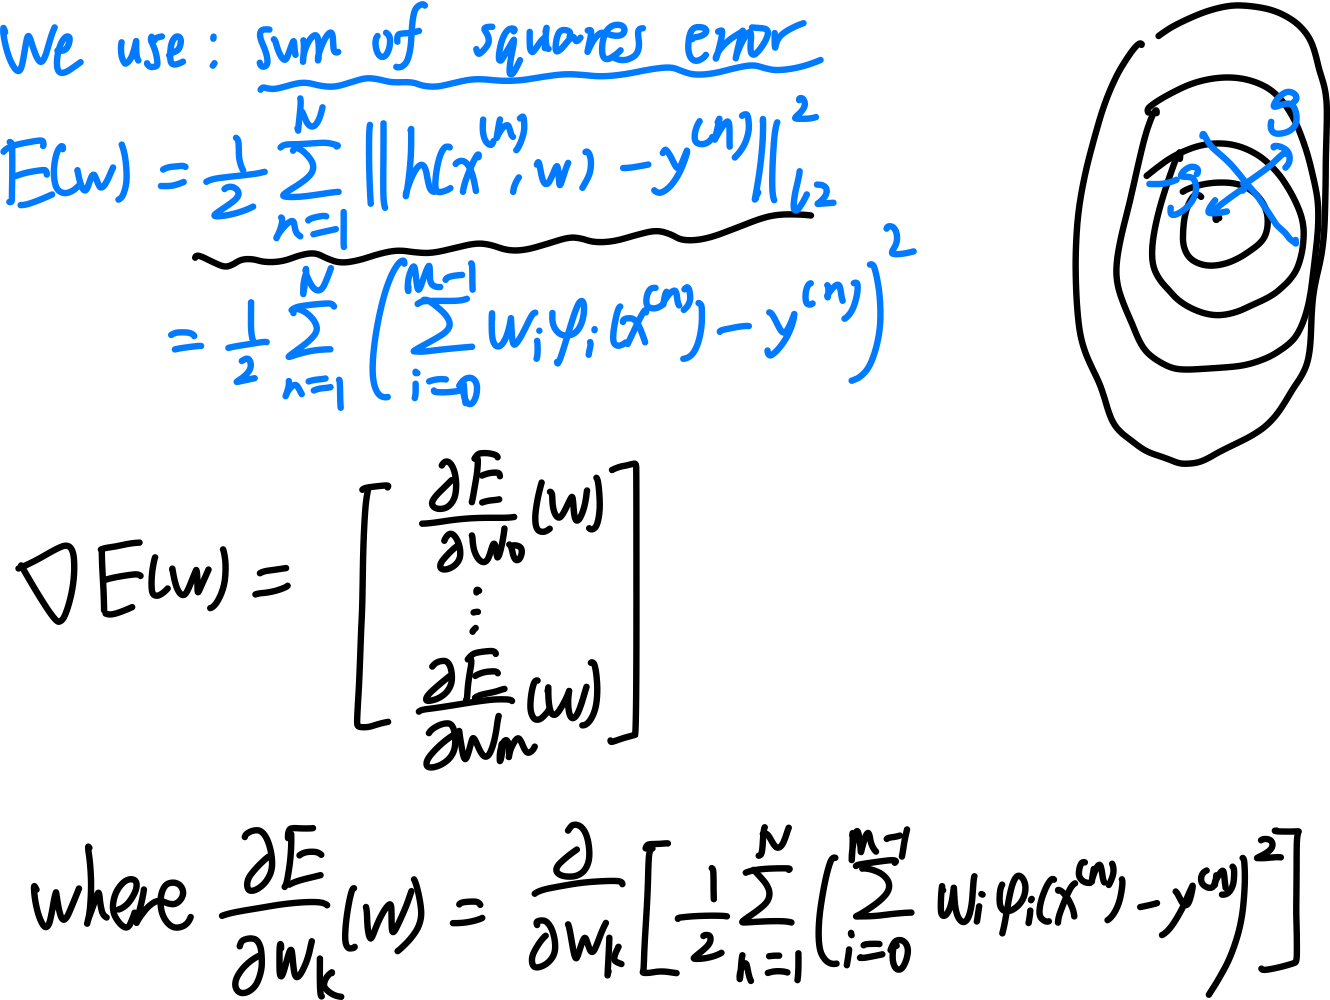 We use: sum of squares error
E(w) = \frac{1}{2} \sum_{n=1}^{N} || h(x^{(n)}, w) - y^{(n)} ||_{L2}^{2}
= \frac{1}{2} \sum_{n=1}^{N} ( \sum_{i=0}^{M-1} w_i φ_i(x^{(n)}) - y^{(n)} )^2
g
-g
∇E(w) = [ \frac{∂E}{∂w_0}(w)
⋮
\frac{∂E}{∂w_m}(w) ]
where \frac{∂E}{∂w_k}(w) = \frac{∂}{∂w_k} [ \frac{1}{2} \sum_{n=1}^{N} ( \sum_{i=0}^{M-1} w_i φ_i(x^{(n)}) - y^{(n)} )^2 ]